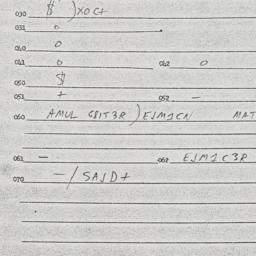 030 $ )XOCt
031 0
040 0
041 0 042 0
050 $
051 + 052 —
060 AMUL GSIT3R )EJMICN MAT
061 — 062 EJMIC3R
070 —/SAJD+